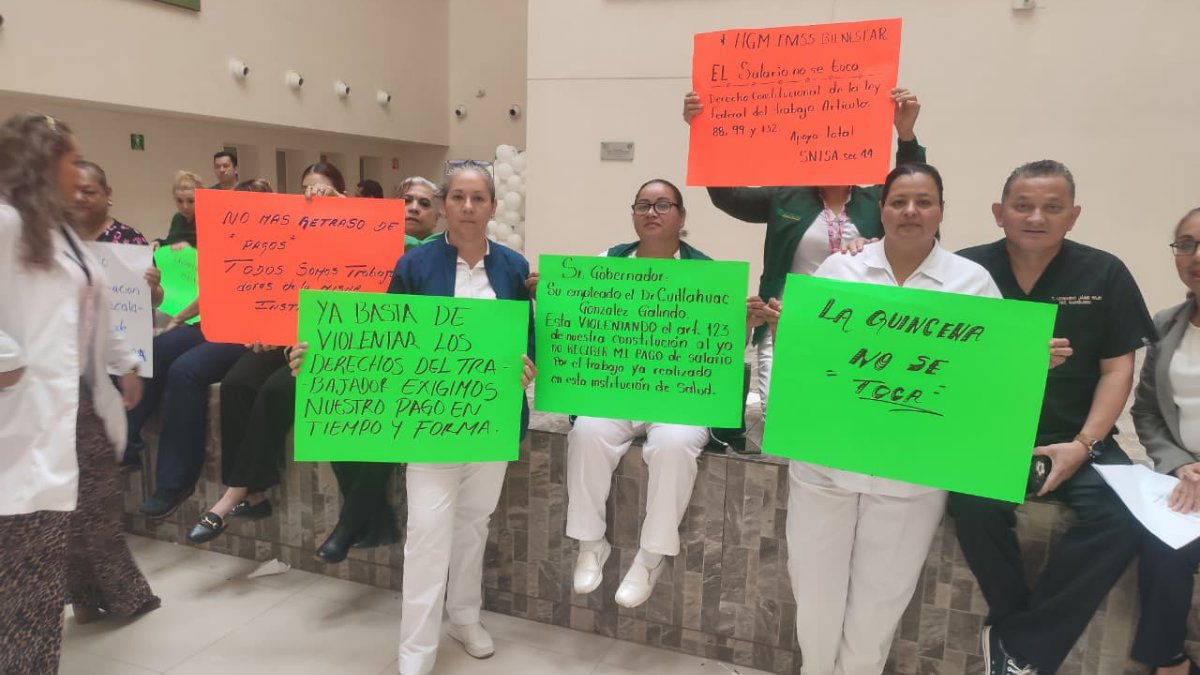 * HGM IMSS BIENESTAR
EL Salario no se toca
Derecho Constitucional de la ley
Federal del trabajo Articulos
88, 99 y 132.
Apoyo total
SNTSA sec 44
NO MAS RETRASO DE
"PAGOS"
TODOS SOMOS TRABAJA
DORES DE LA MISMA
INSTI
YA BASTA DE
VIOLENTAR LOS
DERECHOS DEL TRA-
-BAJADOR EXIGIMOS
NUESTRO PAGO EN
TIEMPO Y FORMA.
Sr. GOBERNADOR:
Su empleado el Dr Cuitlahuac
Gonzalez Galindo.
Esta VIOLENTANDO el art. 123
de nuestra constitución al yo
NO RECIBIR MI PAGO de salario
Por el trabajo ya realizado
en esta institución de Salud.
LA QUINCENA
NO SE
= TOCA =